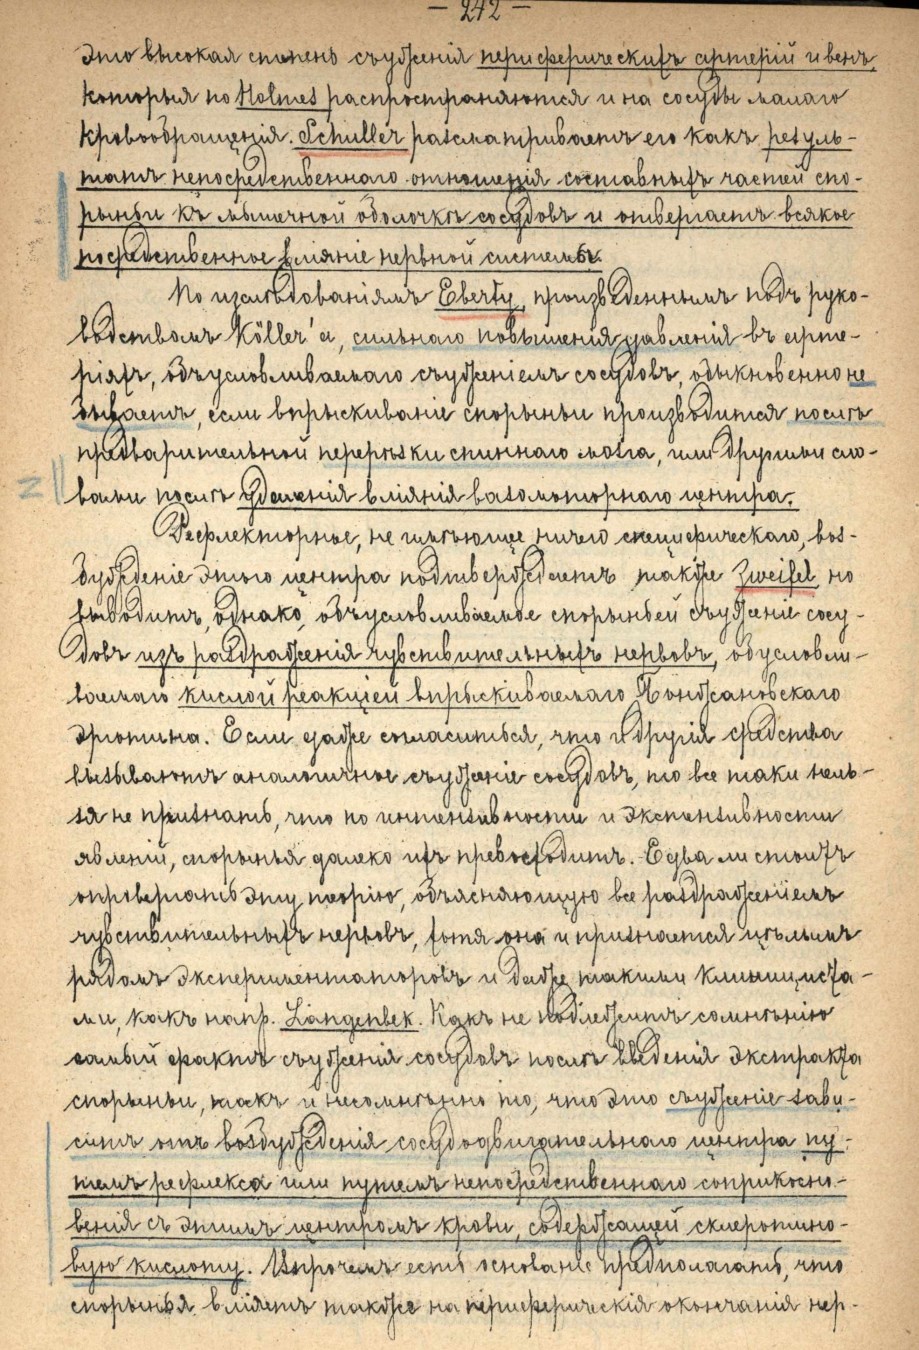 — 242 —
это высокая степень съуженія периферическихъ артерій и венъ,
которыя по Holmes распространяются и на сосуды малаго
кровообращенія. Schuller разсматриваетъ его какъ резуль-
татъ непосредственнаго отношенія составныхъ частей спо-
рыньи къ мышечной оболочкѣ сосудовъ и отвергаетъ всякое
посредственное вліяніе нервной системы.
По изслѣдованіямъ Eberty, произведеннымъ подъ руко-
водствомъ Köller'а, сильнаго повышенія давленія въ арте-
ріяхъ, объусловливаемаго съуженіемъ сосудовъ, обыкновенно не
бываетъ, если впрыскиваніе спорыньи производится послѣ
предварительной перерѣзки спиннаго мозга, или другими сло-
вами послѣ удаленія вліянія вазомоторнаго центра.
Рефлекторное, не имѣющее ничего специфическаго, воз-
бужденіе этого центра подтверждаетъ также Zweifel, но
выводитъ, однако, объусловливаемое спорыньей съуженіе сосу-
довъ изъ раздраженія чувствительныхъ нервовъ, обусловли-
ваемаго кислой реакціей впрыскиваемаго Бонжановскаго
эрготина. Если даже согласиться, что и другія средства
вызываютъ аналогичное съуженіе сосудовъ, то все таки нель-
зя не признать, что по интензивности и экстензивности
явленій, спорынья далеко ихъ превосходитъ. Едва ли стоитъ
опровергать эту теорію, объясняющую все раздраженіемъ
чувствительныхъ нервовъ, хотя она и признается цѣлымъ
рядомъ экспериментаторовъ и даже такими клиницистa-
ми, какъ напр. Langenbek. Какъ не подлежитъ сомнѣнію
самый фактъ съуженія сосудовъ послѣ введенія экстракта
спорыньи, такъ и несомнѣнно то, что это съуженіе зави-
ситъ отъ возбужденія сосудодвигательнаго центра пу-
темъ рефлекса или путемъ непосредственнаго соприкосно-
венія съ этимъ центромъ крови, содержащей склеротино-
вую кислоту. Впрочемъ есть основаніе предполагать, что
спорынья вліяетъ также на периферическія окончанія нер-